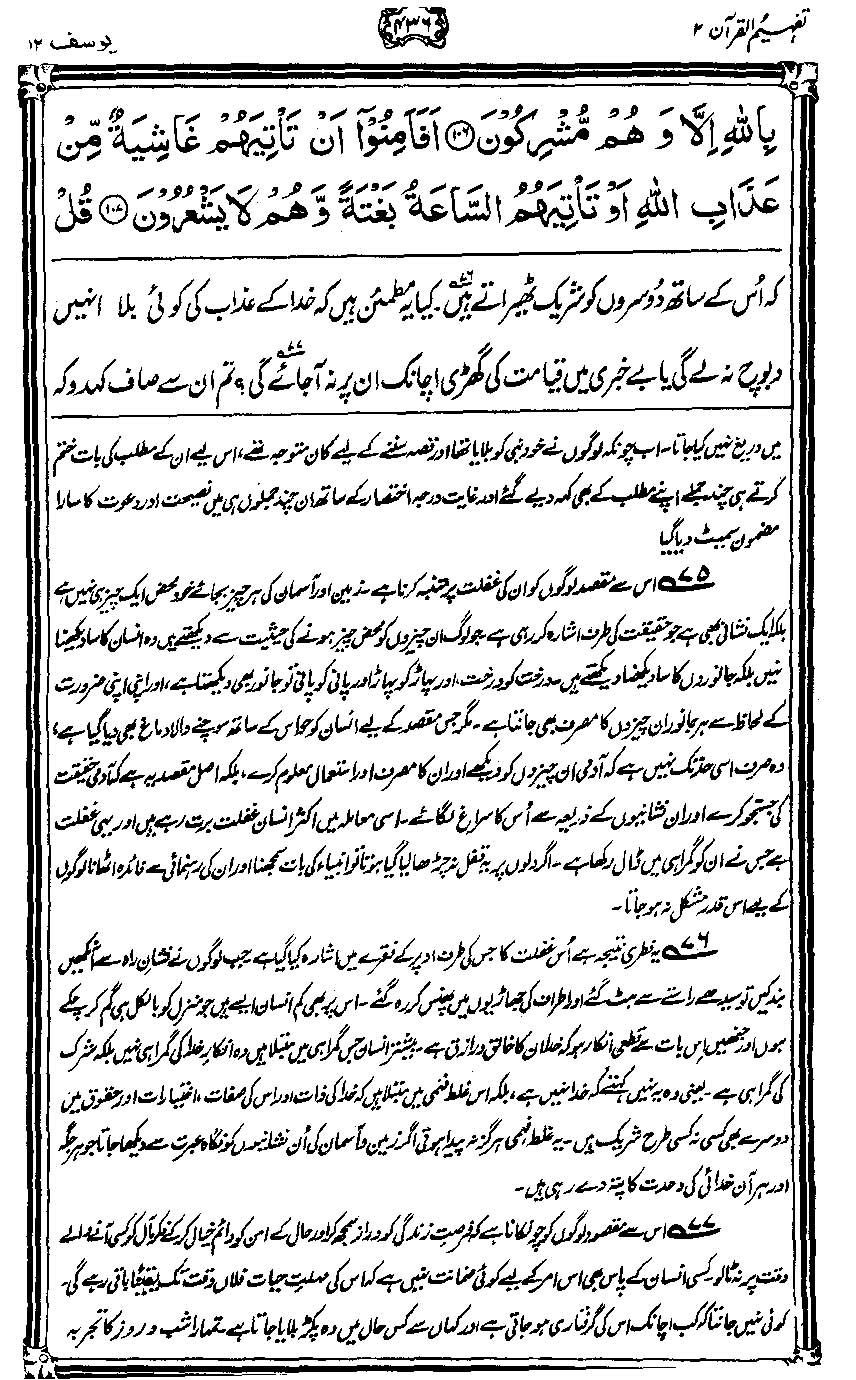 تفہیم القرآن ۲
۴۳۶
یوسف ۱۲
بِاللّٰهِ اِلَّا وَ هُمْ مُّشْرِكُوْنَ ۝۱۰۶ اَفَاَمِنُوْۤا اَنْ تَاْتِیَهُمْ غَاشِیَةٌ مِّنْ
عَذَابِ اللّٰهِ اَوْ تَاْتِیَهُمُ السَّاعَةُ بَغْتَةً وَّ هُمْ لَا یَشْعُرُوْنَ ۝۱۰۷ قُلْ
کہ اُس کے ساتھ دُوسروں کو شریک ٹھیراتے ہیں۷۶۔ کیا یہ مطمئن ہیں کہ خدا کے عذاب کی کوئی بلا انہیں
دبوچ نہ لے گی یا بے خبری میں قیامت کی گھڑی اچانک ان پر نہ آجائے گی۷۷؟ تم ان سے صاف کہدو کہ
میں دریغ نہیں کیا جاتا۔ اب چونکہ لوگوں نے خود نبی کو بلایا تھا اور قصہ سننے کے لیے کان متوجہ تھے، اس لیے ان کے مطلب کی بات ختم
کرتے ہی چند جملے اپنے مطلب کے بھی کہہ دیے گئے اور غایت درجہ اختصار کے ساتھ ان چند جملوں ہی میں نصیحت اور دعوت کا سارا
مضمون سمیٹ دیا گیا
۷۵ اس سے مقصد لوگوں کو ان کی غفلت پر متنبہ کرنا ہے۔ زمین اور آسمان کی ہر چیز بجائے خود محض ایک چیز ہی نہیں ہے
بلکہ ایک نشانی بھی ہے جو حقیقت کی طرف اشارہ کر رہی ہے۔ جو لوگ ان چیزوں کو محض چیز ہونے کی حیثیت سے دیکھتے ہیں وہ انسان کا سا دیکھنا
نہیں بلکہ جانوروں کا سا دیکھنا دیکھتے ہیں۔ درخت کو درخت، اور پہاڑ کو پہاڑ اور پانی کو پانی تو جانور بھی دیکھتا ہے، اور اپنی اپنی ضرورت
کے لحاظ سے ہر جانور ان چیزوں کا مصرف بھی جانتا ہے۔ مگر جس مقصد کے لیے انسان کو حواس کے ساتھ سوچنے والا دماغ بھی دیا گیا ہے،
وہ صرف اسی حد تک نہیں ہے کہ آدمی ان چیزوں کو دیکھے اور ان کا مصرف اور استعمال معلوم کرے، بلکہ اصل مقصد یہ ہے کہ آدمی حقیقت
کی جستجو کرے اور ان نشانیوں کے ذریعہ سے اُس کا سراغ لگائے۔ اسی معاملہ میں اکثر انسان غفلت برت رہے ہیں اور یہی غفلت
ہے جس نے ان کو گمراہی میں ڈال رکھا ہے۔ اگر دلوں پر یہ قفل نہ چڑھا لیا گیا ہوتا تو انبیاء کی بات سمجھنا اور ان کی رہنمائی سے فائدہ اٹھانا لوگوں
کے لیے اس قدر مشکل نہ ہو جاتا۔
۷۶ یہ فطری نتیجہ ہے اُس غفلت کا جس کی طرف اوپر کے فقرے میں اشارہ کیا گیا ہے۔ جب لوگوں نے نشانِ راہ سے آنکھیں
بند کیں تو سیدھے راستے سے ہٹ گئے اور اطراف کی جھاڑیوں میں پھنس کر رہ گئے۔ اس پر بھی کم انسان ایسے ہیں جو منزل کو بالکل ہی گم کر چکے
ہوں اور جنھیں اِس بات سے قطعی انکار ہو کہ خدا ان کا خالق و رازق ہے۔ بیشتر انسان جس گمراہی میں مبتلا ہیں وہ انکارِ خدا کی گمراہی نہیں بلکہ شرک
کی گمراہی ہے۔ یعنی وہ یہ نہیں کہتے کہ خدا نہیں ہے، بلکہ اس غلط فہمی میں مبتلا ہیں کہ خدا کی ذات اور اس کی صفات، اختیارات اور حقوق میں
دوسرے بھی کسی نہ کسی طرح شریک ہیں۔ یہ غلط فہمی ہرگز نہ پیدا ہوتی اگر زمین و آسمان کی اُن نشانیوں کو نگاہِ عبرت سے دیکھا جاتا جو ہر جگہ
اور ہر آن خدائی کی وحدت کا پتہ دے رہی ہیں۔
۷۷ اس سے مقصود لوگوں کو چونکانا ہے کہ فرصتِ زندگی کو دراز سمجھ کر اور حال کے امن کو دائم خیال کر کے فکرِ مآل کو کسی آنے والے
وقت پر نہ ٹالو۔ کسی انسان کے پاس بھی اس امر کے لیے کوئی ضمانت نہیں ہے کہ اس کی مہلتِ حیات فلاں وقت تک یقیناً باقی رہے گی۔
کوئی نہیں جانتا کہ کب اچانک اس کی گرفتاری ہو جاتی ہے اور کہاں سے کس حال میں وہ پکڑ بلایا جاتا ہے۔ تمہارا شب و روز کا تجربہ